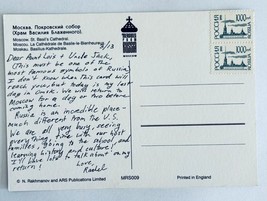 Москва. Покровский собор
(Храм Василия Блаженного).
Moscow. St. Basil's Cathedral.
Moscou. La Cathédrale de Basile-le-Bienheureux
Moskau. Basilius-Kathedrale.
Dear Aunt Lois + Uncle Jack,
(This must be one of the
most famous symbols of Russia)
I don't know when this card will
reach you, but today is my last
day in Omsk. We will return to
Moscow for a day or two before
coming home.
Russia is an incredible place -
much different from the U.S.
We are all very busy, seeing
everything, time with our host
families, going to the school, and
learning history and culture!
I'll have lots to talk about on
my return!
Love,
Rachel
1000
1000
© N. Rakhmanov and ARS Publications Limited
MRS009
Printed in England